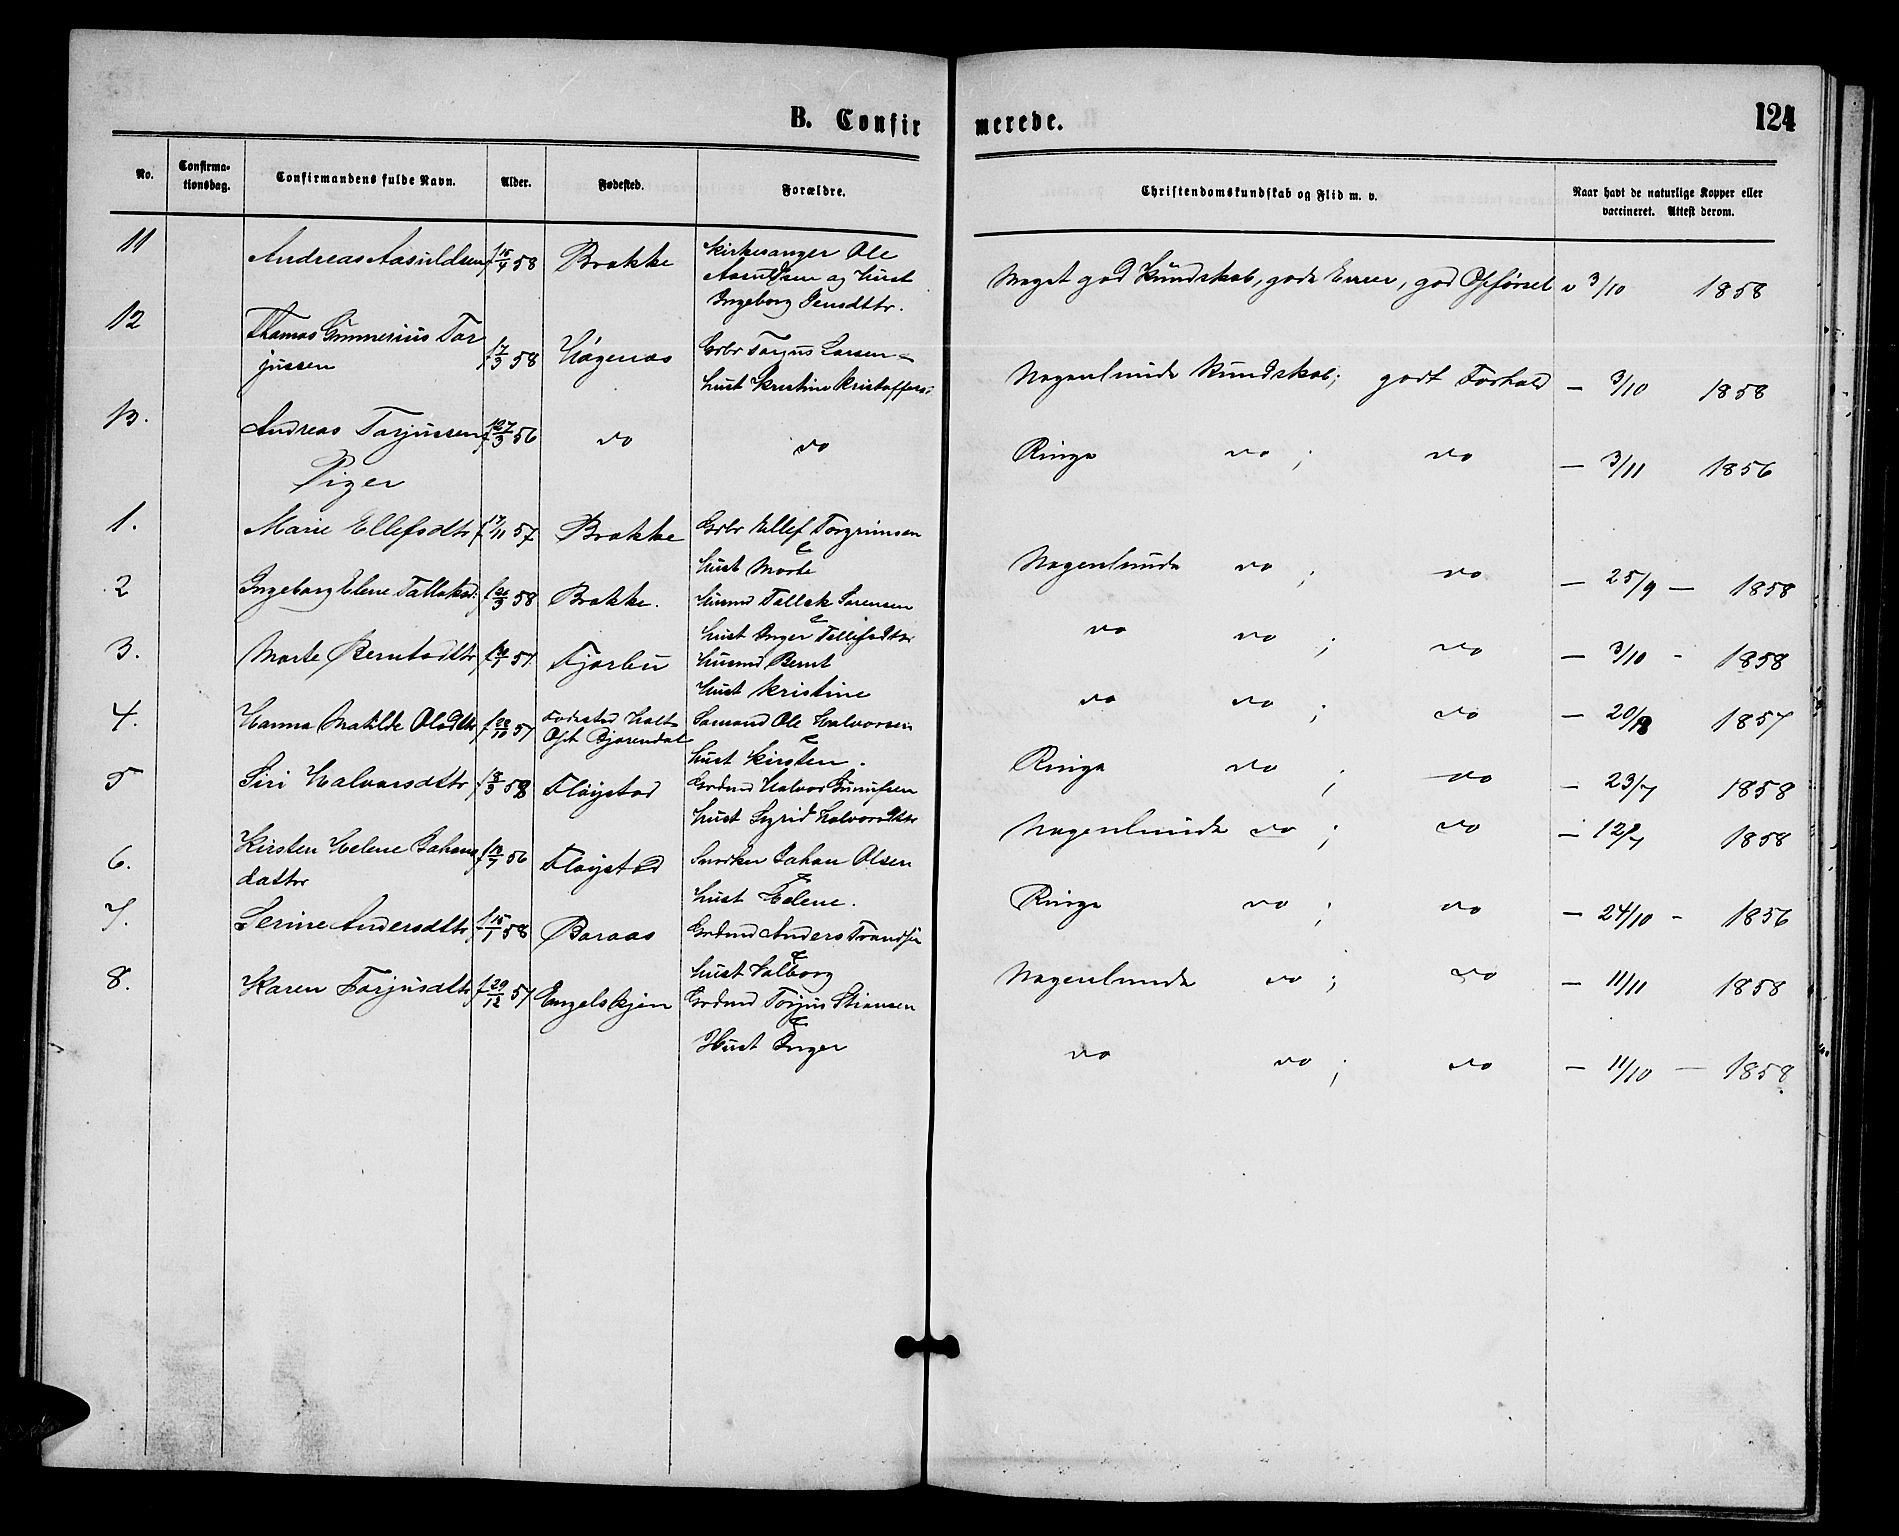 B. Confirmerede.
124
No.
Confirma-
tionsdag.
Confirmandens fulde Navn.
Alder.
Fødested.
Forældre.
Christendomskundskab og Flid m. v.
Naar havt de naturlige Kopper eller
vaccineret. Attest derom.
11 Andreas Aasuldsen f 15/4 58 Brække Kirkesanger Ole
Aasuldsen og Hust
Ingeborg Jensdttr.
Noget god Kundskab, gode Evner, god Opførsel v 3/10 1858
12 Thomas Gunnerius Tar
jussen
f 7/3 58 Høgenæs Grbr Tarjus Larsen
Hust Kristine Kristoffers:
Nogenlunde Kundskab; godt Forhold — 3/10 1858
13. Andreas Tarjussen f 27/3 56 do do
Ringe do ; do — 3/11 1856
Piger
1. Marie Ellefsdtr f 17/11 57 Brække Grbr Ellef Torgrimsen
Hust Marte
Nogenlunde do ; do — 25/9 — 1858
2 Ingeborg Elene Tallaksd: 58 Brække. Husmd Tallak Sørensen
Hust Inger Tellefsdttr
do do ; do — 3/10 - 1858
3. Marte Berntsdttr 57 Fjærbu Husmd Bernt
Hust Kristine
do do ; do — 1857
4. Hanna Matilde Olsdttr f 28/10 57 Fødested Holt
Opt Bjorendal
Sømand Ole Halvorsen
Hust Kirsten.
Ringe do ; do — 23/7 1858
5 Siri Halvorsdttr f 8/3 58 Fløystad Grdmd Halvor Gunufsen
Hust Sigrid Halvorsdttr
Nogenlunde do ; do — 1858
6. Kirsten Helene Johans
datter
56 Fløystad Snedker Johan Olsen
Hust Helene.
Ringe do ; do — 24/10 - 1856
7. Serine Andersdttr f 15/1 58 Baraas Grdmd Anders Trondsen
Hust Salborg
Nogenlunde do ; do — 11/11 1858
8. Karen Tarjusdttr f 29/12 57 Engelskjøn Grdmd Torjus Stiansen
Hust Inger
do do ; do — 11/10 — 1858.